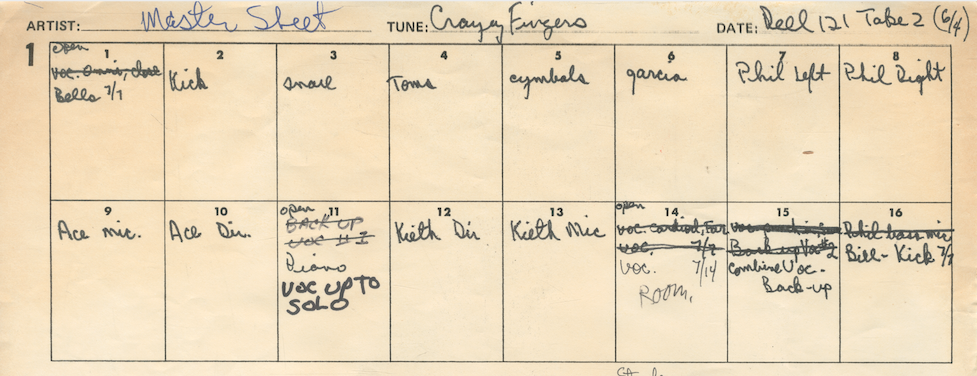 ARTIST: Master Sheet TUNE: Crazy Fingers DATE: Reel 121 Take 2 (6/4)
1
1
open
voc. omni, close
Bells 7/7
2
Kick
3
snare
4
Toms
5
cymbals
6
garcia
7
Phil Left
8
Phil Right
9
Ace mic.
10
Ace Dir.
11
open
BACK UP
VOC # 1
Piano
VOC UP TO
SOLO
12
Kieth Dir
13
Kieth Mic
14
open
voc. cardiod, Far
voc. 7/7
voc. 7/14
ROOM.
15
Back up Voc #2
combine Voc.
Back-up
16
Phil bass mic
Bill- Kick 7/7